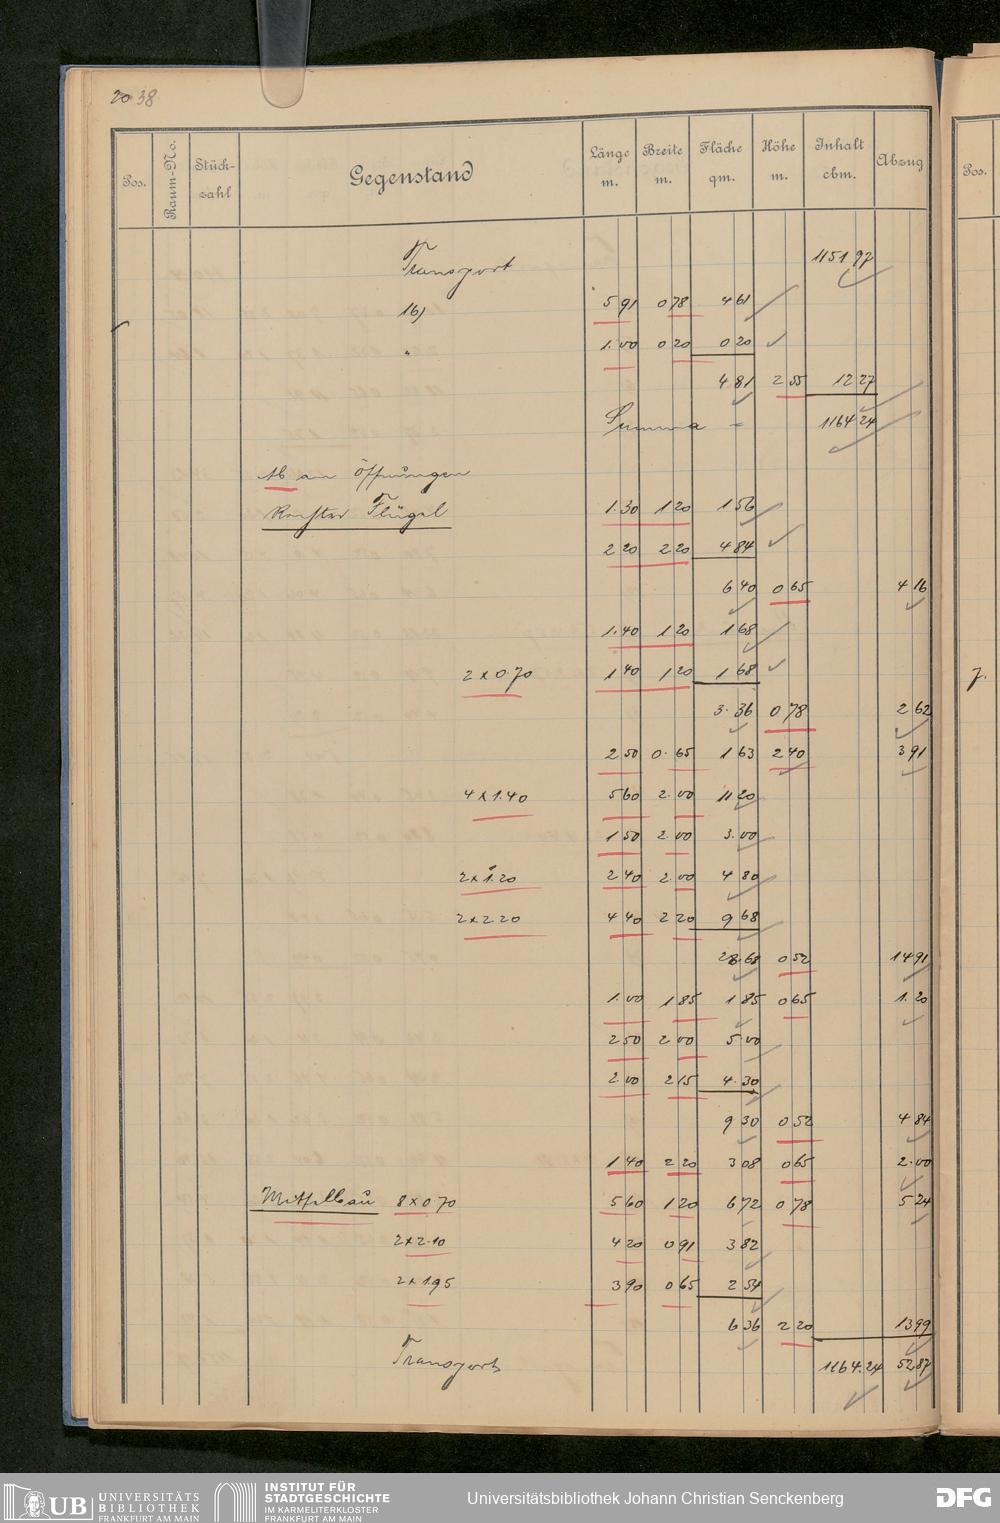 20 38
Pos. Raum-No. Stück-zahl Gegenstand Länge m. Breite m. Fläche qm. Höhe m. Inhalt cbm. Abzug Pos.
Transport 1151 97
16) 5 91 0 78 4 61
" 1.00 0 20 0 20
4 81 2 55 12 27
Summa = 1164 24
Ab an Öffnungen
Rechter Flügel 1.30 1 20 1 56
2 20 2 20 4 84
6 40 0 65 4 16
1.40 1 20 1 68
2 x 0.70 1 40 1 20 1 68 7.
3.36 0 78 2 62
2 50 0.65 1 63 2 40 3 91
4 x 1.40 5 60 2.00 11 20
1 50 2.00 3.00
2 x 1.20 2 40 2 00 4 80
2 x 2 20 4 40 2 20 9 68
28.68 0 52 14 91
1.00 1 85 1 85 0 65 1.20
2 50 2 00 5.00
2.00 2 15 4.30
9 30 0 52 4 84
1 40 2 20 3 08 0 65 2.00
Mittelbau 8 x 0.70 5 60 1 20 6 72 0 78 5 24
2 x 2.10 4 20 0 91 3 82
2 x 1.95 3 90 0 65 2 54
6 36 2 20 13 99
Transport 1164.24 52 87
UB UNIVERSITÄTS BIBLIOTHEK FRANKFURT AM MAIN
INSTITUT FÜR STADTGESCHICHTE IM KARMELITERKLOSTER FRANKFURT AM MAIN
Universitätsbibliothek Johann Christian Senckenberg
DFG